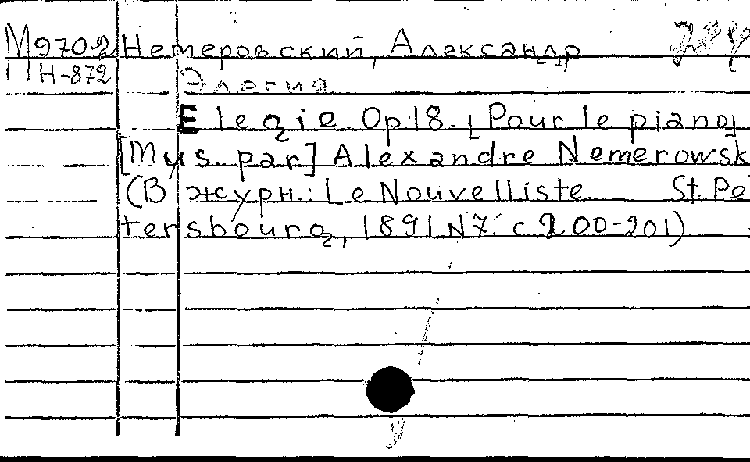 М9702 Немеровский, Александр
Н-872 Элегия
Elegie Op.18. [Pour le piano]
[Mus. par] Alexandre Nemerowsk
(В журн.: Le Nouvelliste St. Pe
tersbourg, 1891 N7. с 200-201)